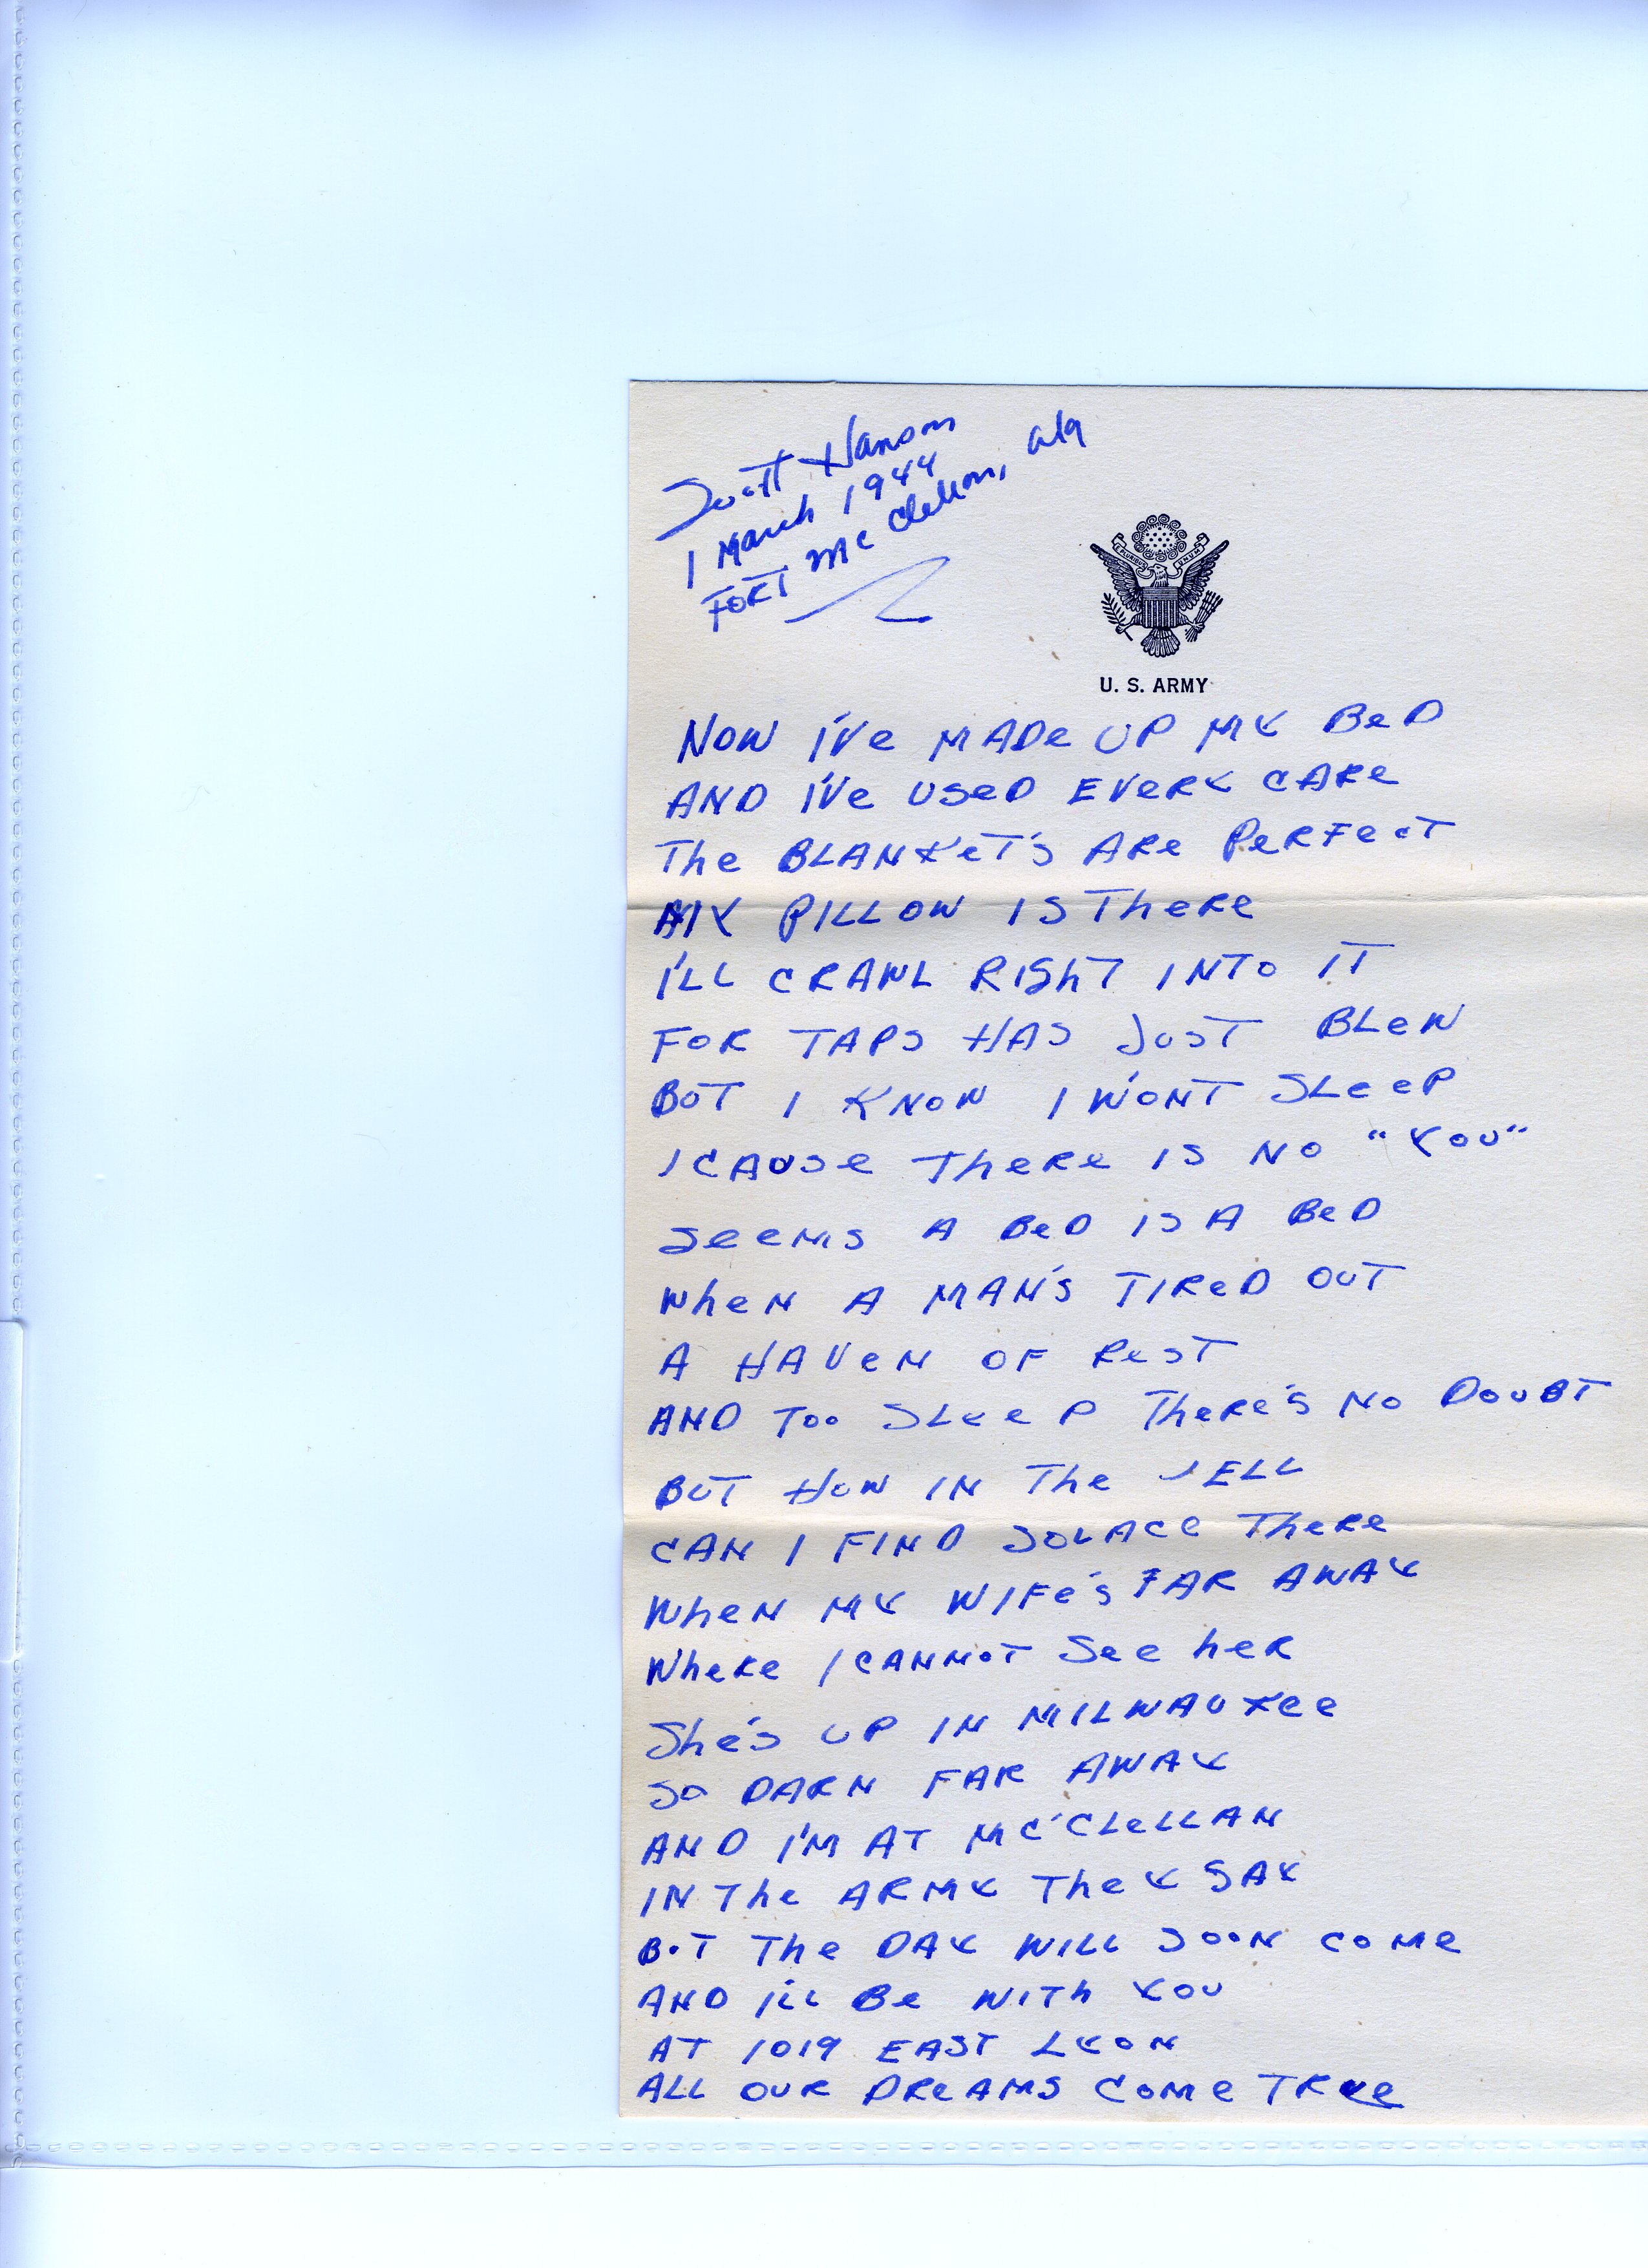 Scott Hanson
1 March 1944
FORT Mc Clellan, Ala
E PLURIBUS UNUM
U. S. ARMY
NOW I'VE MADE UP MY BED
AND I'VE USED EVERY CARE
THE BLANKET'S ARE PERFECT
MY PILLOW IS THERE
I'LL CRAWL RIGHT INTO IT
FOR TAPS HAS JUST BLEW
BUT I KNOW I WON'T SLEEP
'CAUSE THERE IS NO "YOU"
SEEMS A BED IS A BED
WHEN A MAN'S TIRED OUT
A HAVEN OF REST
AND TOO SLEEP THERE'S NO DOUBT
BUT HOW IN THE 'ELL
CAN I FIND SOLACE THERE
WHEN MY WIFE'S FAR AWAY
WHERE I CANNOT SEE HER
SHE'S UP IN MILWAUKEE
SO DARN FAR AWAY
AND I'M AT MC'CLELLAN
IN THE ARMY THEY SAY
BUT THE DAY WILL SOON COME
AND I'LL BE WITH YOU
AT 1019 EAST LYON
ALL OUR DREAMS COME TRUE